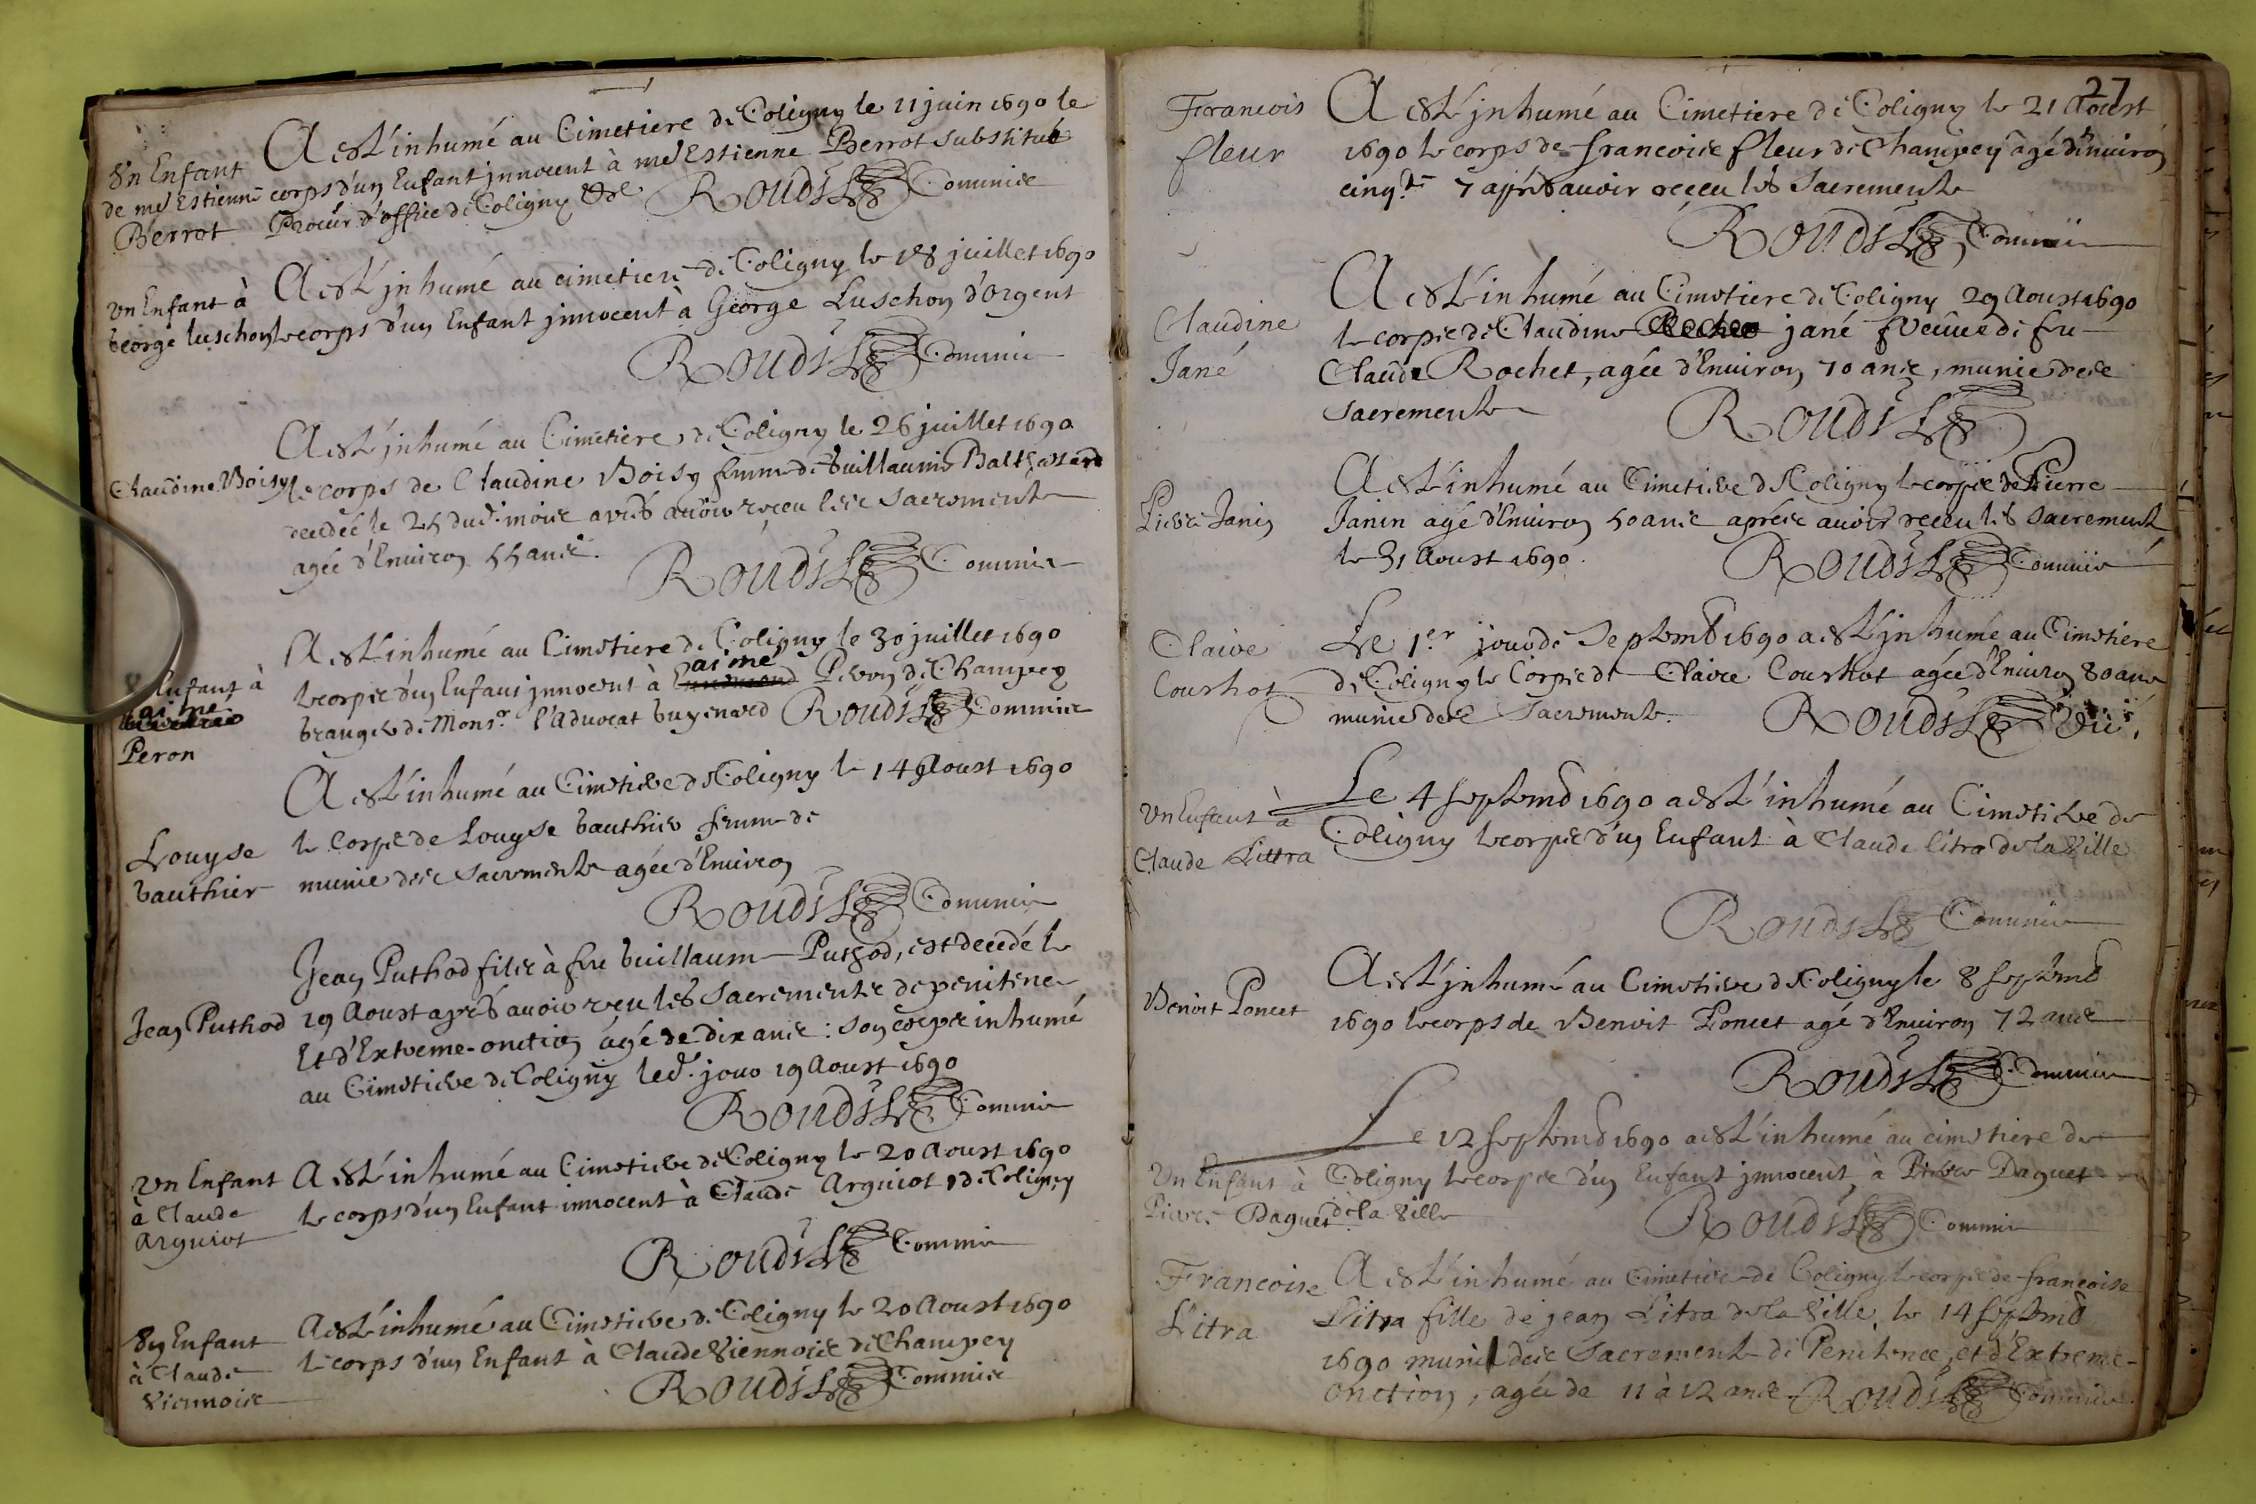 Un Enfant
de me Estienne
Berrot
A esté inhumé au Cimetiere de Coligny le 11 juin 1690 le
corps d'un Enfant jnnocent à me Estienne Berrot substitué
Procur d'office de Coligny
Roudil Commis
Un Enfant à
George Luschon
A esté jnhumé au cimetiere de Coligny le 18 juillet 1690
le corps d'un Enfant jnnocent à George Luschon d'Orgent
Roudil Commis
Claudine Boisy
A esté jnhumé au Cimetiere de Coligny le 26 juillet 1690
le corps de Claudine Boisy femme de Guillaume Balthazard
decedée le 25 dud. mois aprés avoir receu les sacrements
agée d'Enuiron 55 ans.
Roudil Commis
Enfant à
aimé
Peron
A esté inhumé au Cimetiere de Coligny le 30 juillet 1690
le corps d'un Enfant jnnocent à aimé Peron de Champey
Granger de Monsr. l'Advocat Guyenard Roudil Commis
Louyse
Gauthier
A esté inhumé au Cimetiere de Coligny le 14 Aoust 1690
le corps de Louyse Gauthier femme de
munie des sacrements agée d'Enuiron
Roudil Commis
Jean Puthod
Jean Puthod fils à feu Guillaume Puthod, est decedé le
19 Aoust aprés avoir receu les sacrements de penitence
Et d'Extreme-onction âgé de dix ans : son corps inhumé
au Cimetiere de Coligny led. jour 19 Aoust 1690
Roudil Commis
Un Enfant
à Claude
Arguiot
A esté inhumé au Cimetiere de Coligny le 20 Aoust 1690
le corps d'un Enfant innocent à Claude Arguiot, de Coligny
Roudil Commis
Un Enfant
à Claude
Viennois
A esté inhumé au Cimetiere de Coligny le 20 Aoust 1690
le corps d'un Enfant à Claude Viennois de Champey
Roudil Commis
27
Francois
fleur
A esté jnhumé au Cimetiere de Coligny le 21 Aoust
1690 le corps de francois fleur de Champey âgé d'enuiron
cinqte 7 aprés auoir receu les Sacrements
Roudil Commis
Claudine
Jané
A esté inhumé au Cimetiere de Coligny 29 Aoust 1690
le corps de Claudine jané Veuue de feu
Claude Rochet, agée d'Enuiron 70 ans, munie des
sacrements
Roudil
Pierre Janin
A esté inhumé au Cimetiere de Coligny le corps de Pierre
Janin agé d'Enuiron 50 ans aprés auoir receu les sacrements
le 31 Aoust 1690.
Roudil Commis
Claire
Courhot
Le 1er jour de Septemb 1690 a esté jnhumé au Cimetiere
de Coligny le Corps de Claire Courhot agée d'Enuiron 80 ans
munie des Sacrements.
Roudil Vic.
Un Enfant à
Claude Littra
Le 4 septemb 1690 a esté inhumé au Cimetiere de
Coligny le corps d'un Enfant à Claude litra de la Ville
Roudil Commis
Benoit Poncet
A esté jnhumé au Cimetiere de Coligny le 8 septemb
1690 le corps de Benoit Poncet agé d'Enuiron 72 ans
Roudil Commis
Un Enfant à
Pierre Daguet
Le 12 septemb 1690 a esté inhumé au cimetiere de
Coligny le corps d'un Enfant jnnocent, à Pierre Daguet
de la Ville
Roudil Commis
Francoise
Litra
A esté inhumé au Cimetiere de Coligny le corps de francoise
Litra fille de jean Litra de la Ville, le 14 septemb
1690 munie des Sacrements de Penitence, et d'Extreme-
onction, agée de 11 à 12 ans Roudil Commis